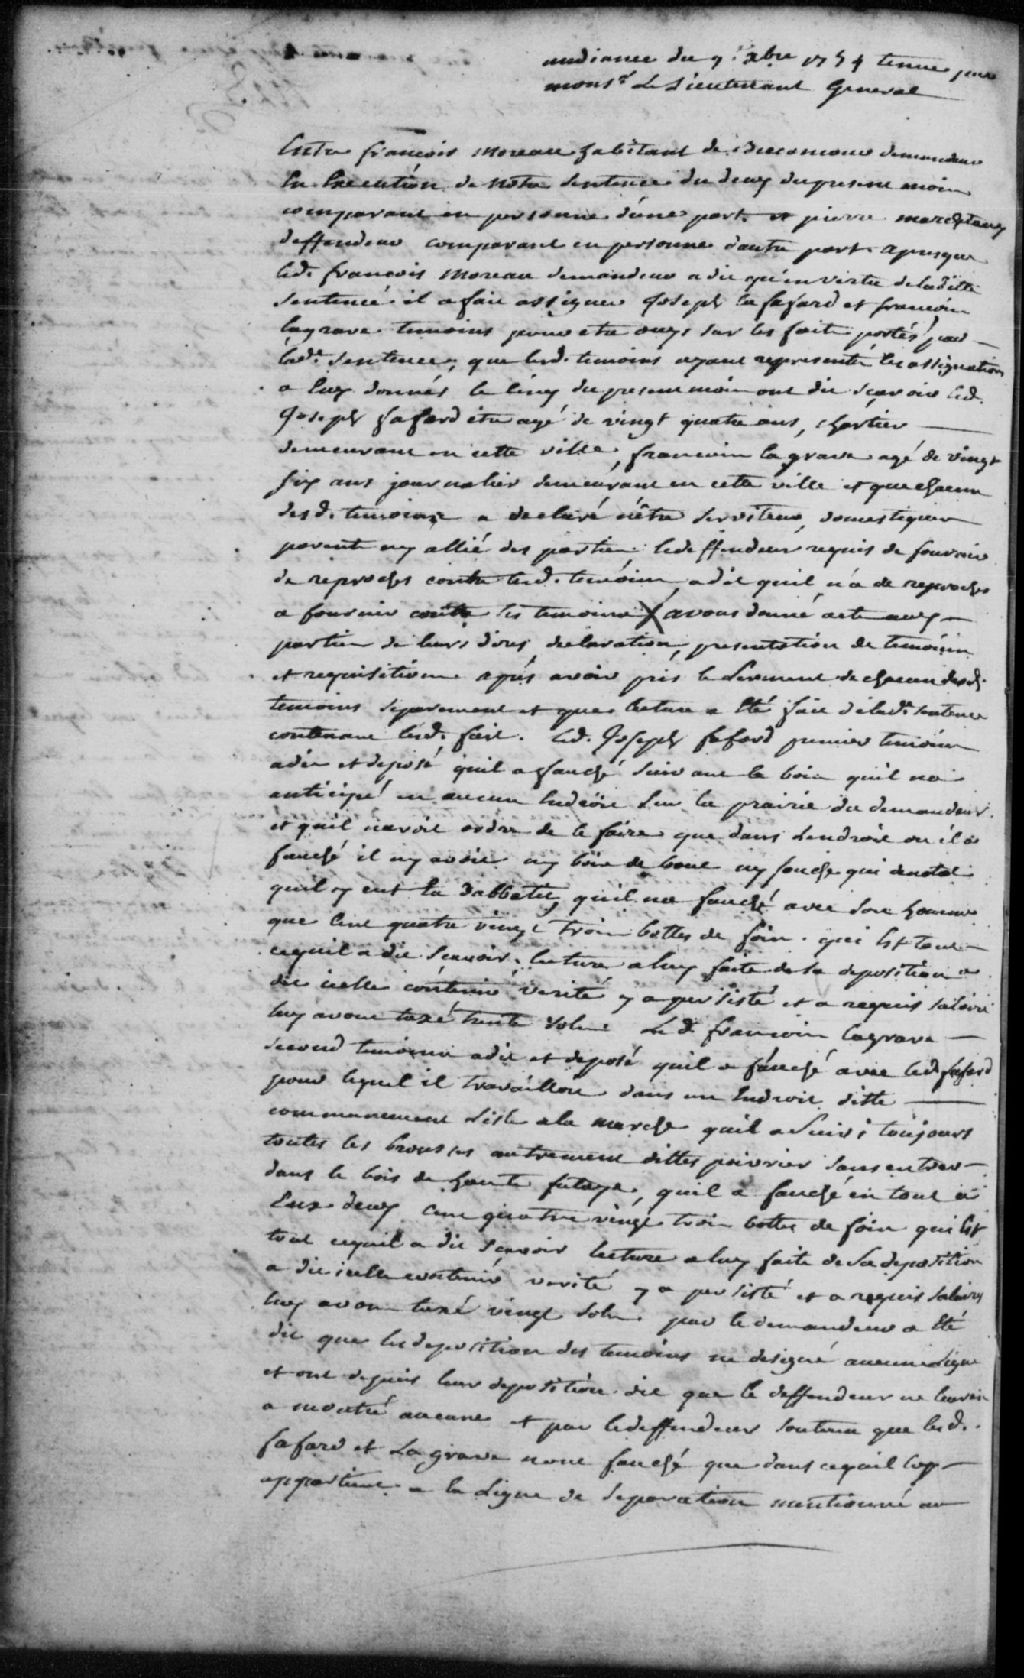 audiance du 9.e xbre 1754 tenue par
monsr. Le Lieutenant General
Entre francois moreau habitant de Becancour demandeur
En Execution de notre Sentence du deux du present mois
comparant en personne d'une part. et pierre
deffendeur comparant en personne d'autre part apresque
led. francois moreau demandeur a dit qu'en virtu de laditte
Sentence il a fait assigner Joseph la fafard et francois
lagrave temoins pour etre ouys sur les fait portés par
lad. Sentence, que lesd. temoins ayant representé les assignation
a Eux données le cinq du present mois ont dit scavoir led.
Joseph fafard etre agé de vingt quatre ans, chartier
demeurant en cette ville, francois la grave agé de vingt
six ans journalier demeurant en cette ville et que chacun
desd. temoins a declaré n'être serviteur, domestiques
parents ny allié des parties ledeffendeur requis de fournir
de reproches contre lesd. temoins a dit quil n'a de reproches
a fournir contre les temoins X avons donné acte aux
parties de leurs dires, declaration, presentation de temoins
et requisitions aprés avoir pris le serment de chacun desd.
temoins separement et que lecture a Eté fait de lad. sentence
contenant lesd. fait. led. Joseph fafard premier temoin
a dit et deposé quil a fauché suivant le bois quil na
anticipé en aucun Endroit sur la prairie du demandeur
et quil navoit ordre de le faire que dans Lendroit ou il a
fauché il ny avoit ny bois de bout ny souche qui denotat
quil y eut la d'abbatis, quil na fauché avec son homme
que Cent quatre vingt trois bottes de foin. qui Est tout
cequil a dit scavoir, lecture a luy faite de sa deposition a
dit icelle contenir verité y a persisté et a requis salaire
luy avons taxé trente sols. Le d. francois lagrave
second temoin a dit et deposé quil a fauché avec led. fafard
pour lequel il travailloit dans un Endroit ditte
communement Liste a la marche quil a suivi toujours
toutes les brousses autrement dittes poivrier sans entrer
dans le bois de haute futaye, quil a fauché en tout a
Eux deux Cent quatre vingt trois bottes de foin qui Est
tout cequil a dit scavoir lecture a luy faite de sa deposition
a dit icelle contenir verité y a persisté et a requis salaire
luy avons taxé vingt sols. par le demandeur a Eté
dit que les deposition des temoins ne designe aucune Ligne
et ont depuis leur deposition dit que le deffendeur ne leur en
a montré aucune et par ledeffendeur soutenu que lesd.
fafard et La grave n'ont fauché que dans cequil luy
appartient a la Ligne de Separation mentionné au